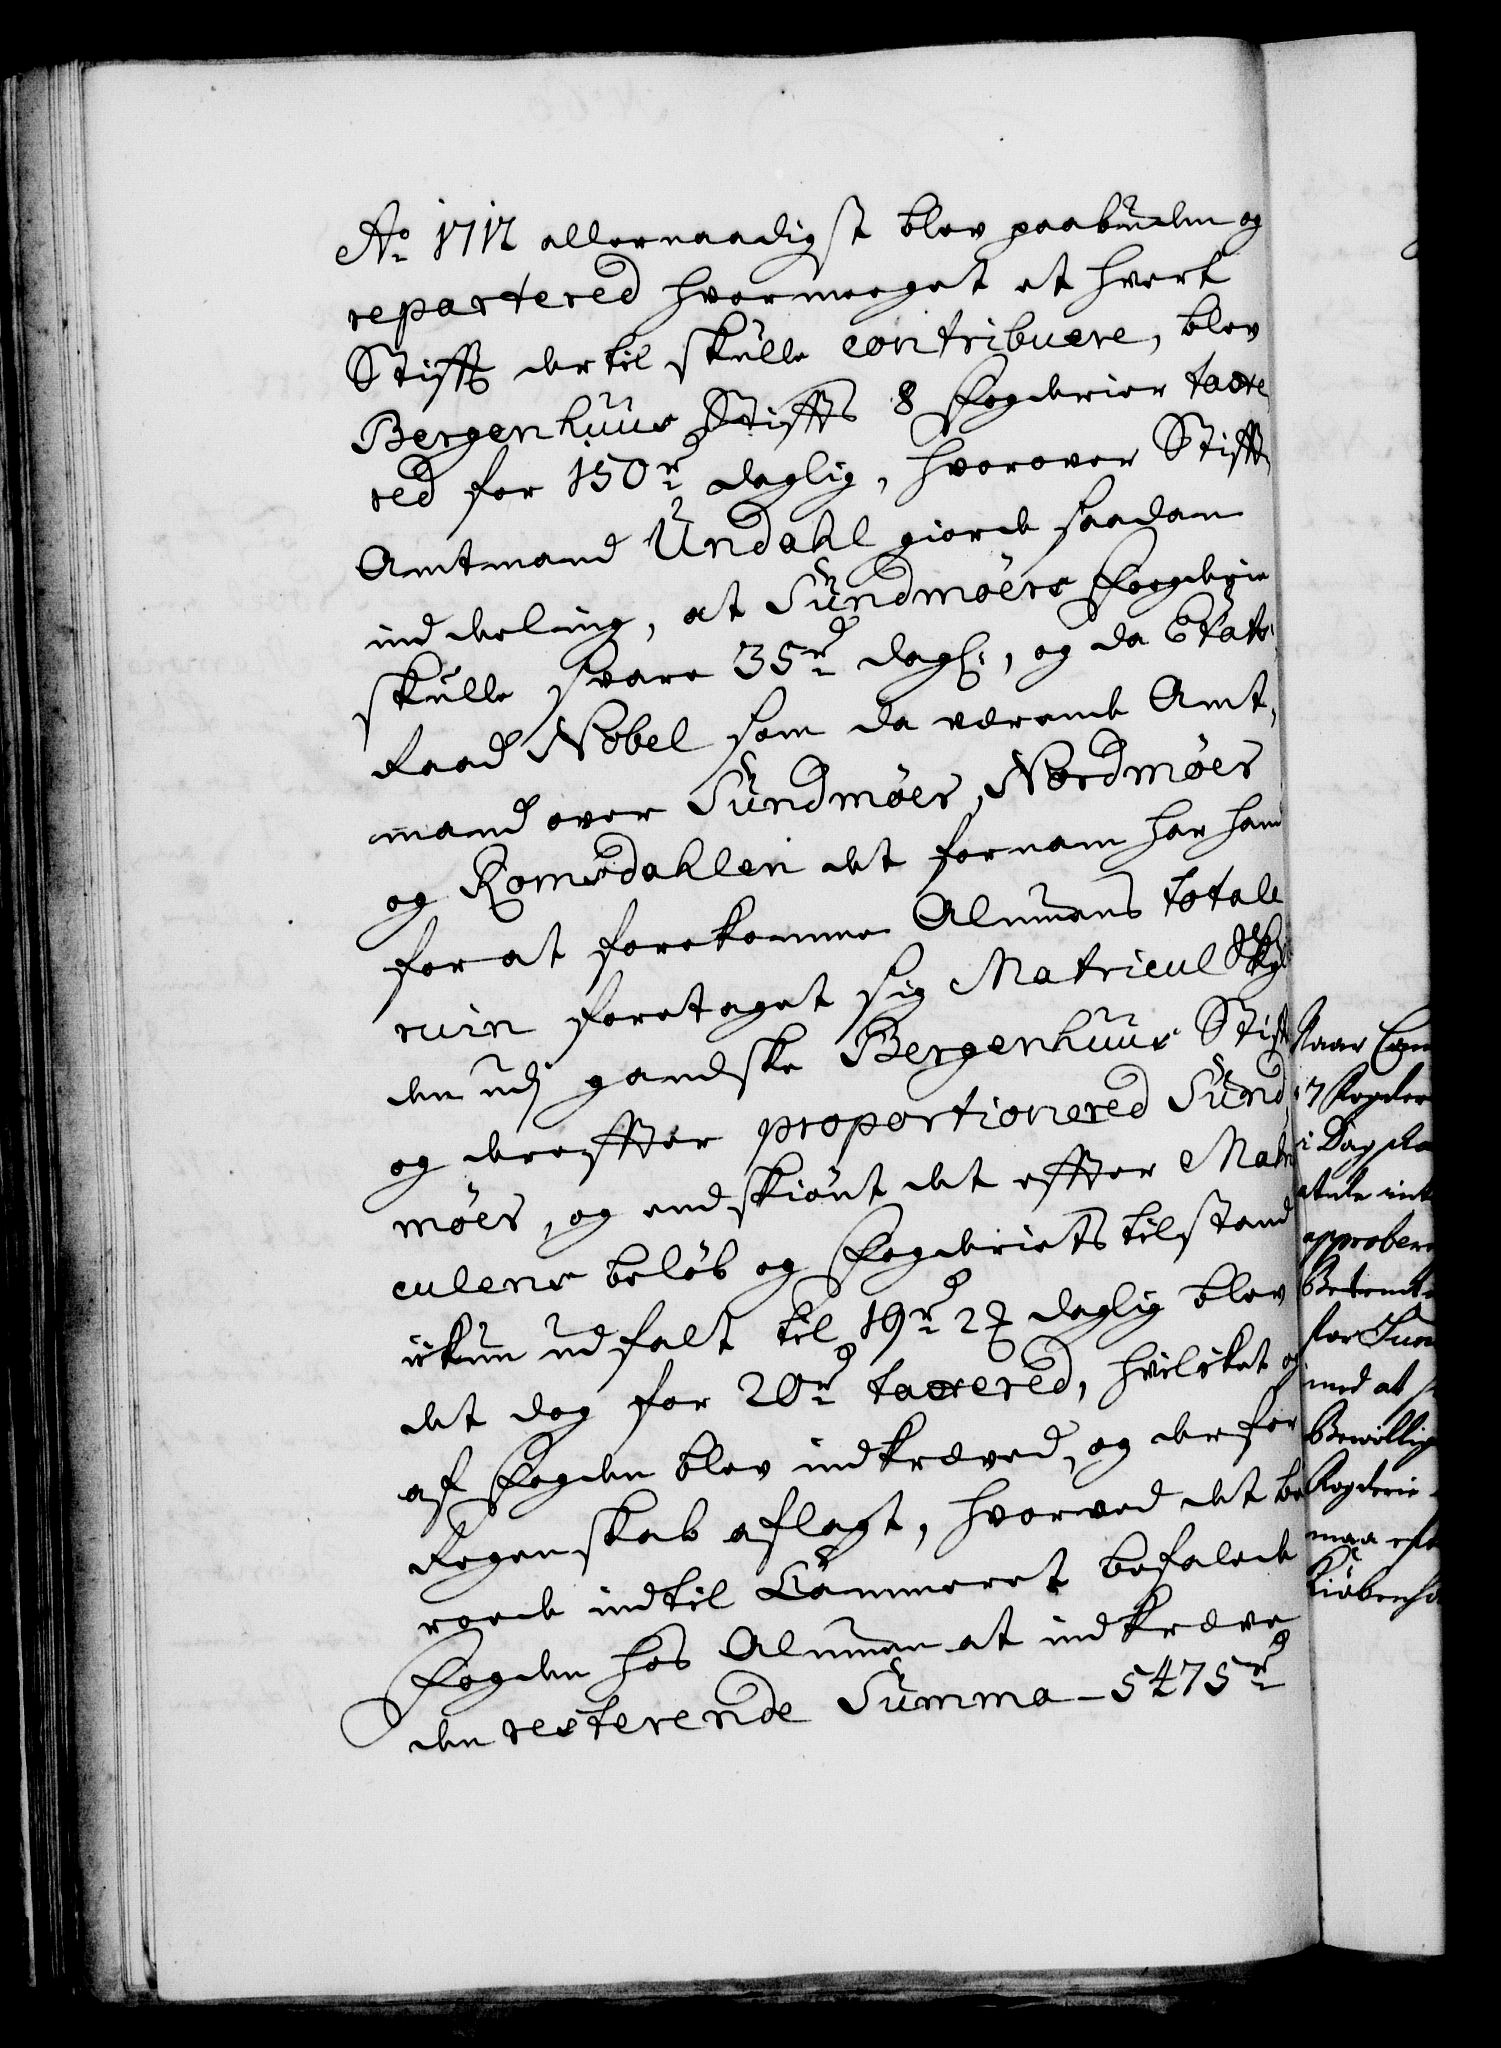 Aō 1712 allernaadigst blev paabuden og
repartered hvormeeget et hvert
Stifft dertil skulle contribuere, blev
Bergenhuus Stiffts 8 Fogderier taxe
red for 150 rd daglig, hvorover Stifft
Amtmand Undahl giorde saadan
inddeeling, at Sundmöers Foegderie
skulle svare 35 rd dagl:, og da Etats
Raad Nobel som da værende Amt,
mand over Sundmöer, Nordmöer
og Romsdahlen det fornam har hand
for at forekomme Almuens totale
ruin foretaget sig Matricul Skyl
den udj gandske Bergenhuus Stift
og derefter proportionered Sund,
möer, og endskiönt det efter Matri
culens belöb og Fogderiets tilstand
ickun udfalt til 19 rd 2 ß daglig blev
det dog for 20 rd taxered, hvilcket og
af Fogden blev indkræved, og derfor
Regenskab aflagt, hvorved det be
roede indtil Cammeret befalede
Fogden hos Almuen at indkræve
den resterende Summa - 5475 rd
Naar Cam
7 Fogder
i Dag
approbere
for Sun
med at
Bevillig
Fogderie
maa
Kiöbenh